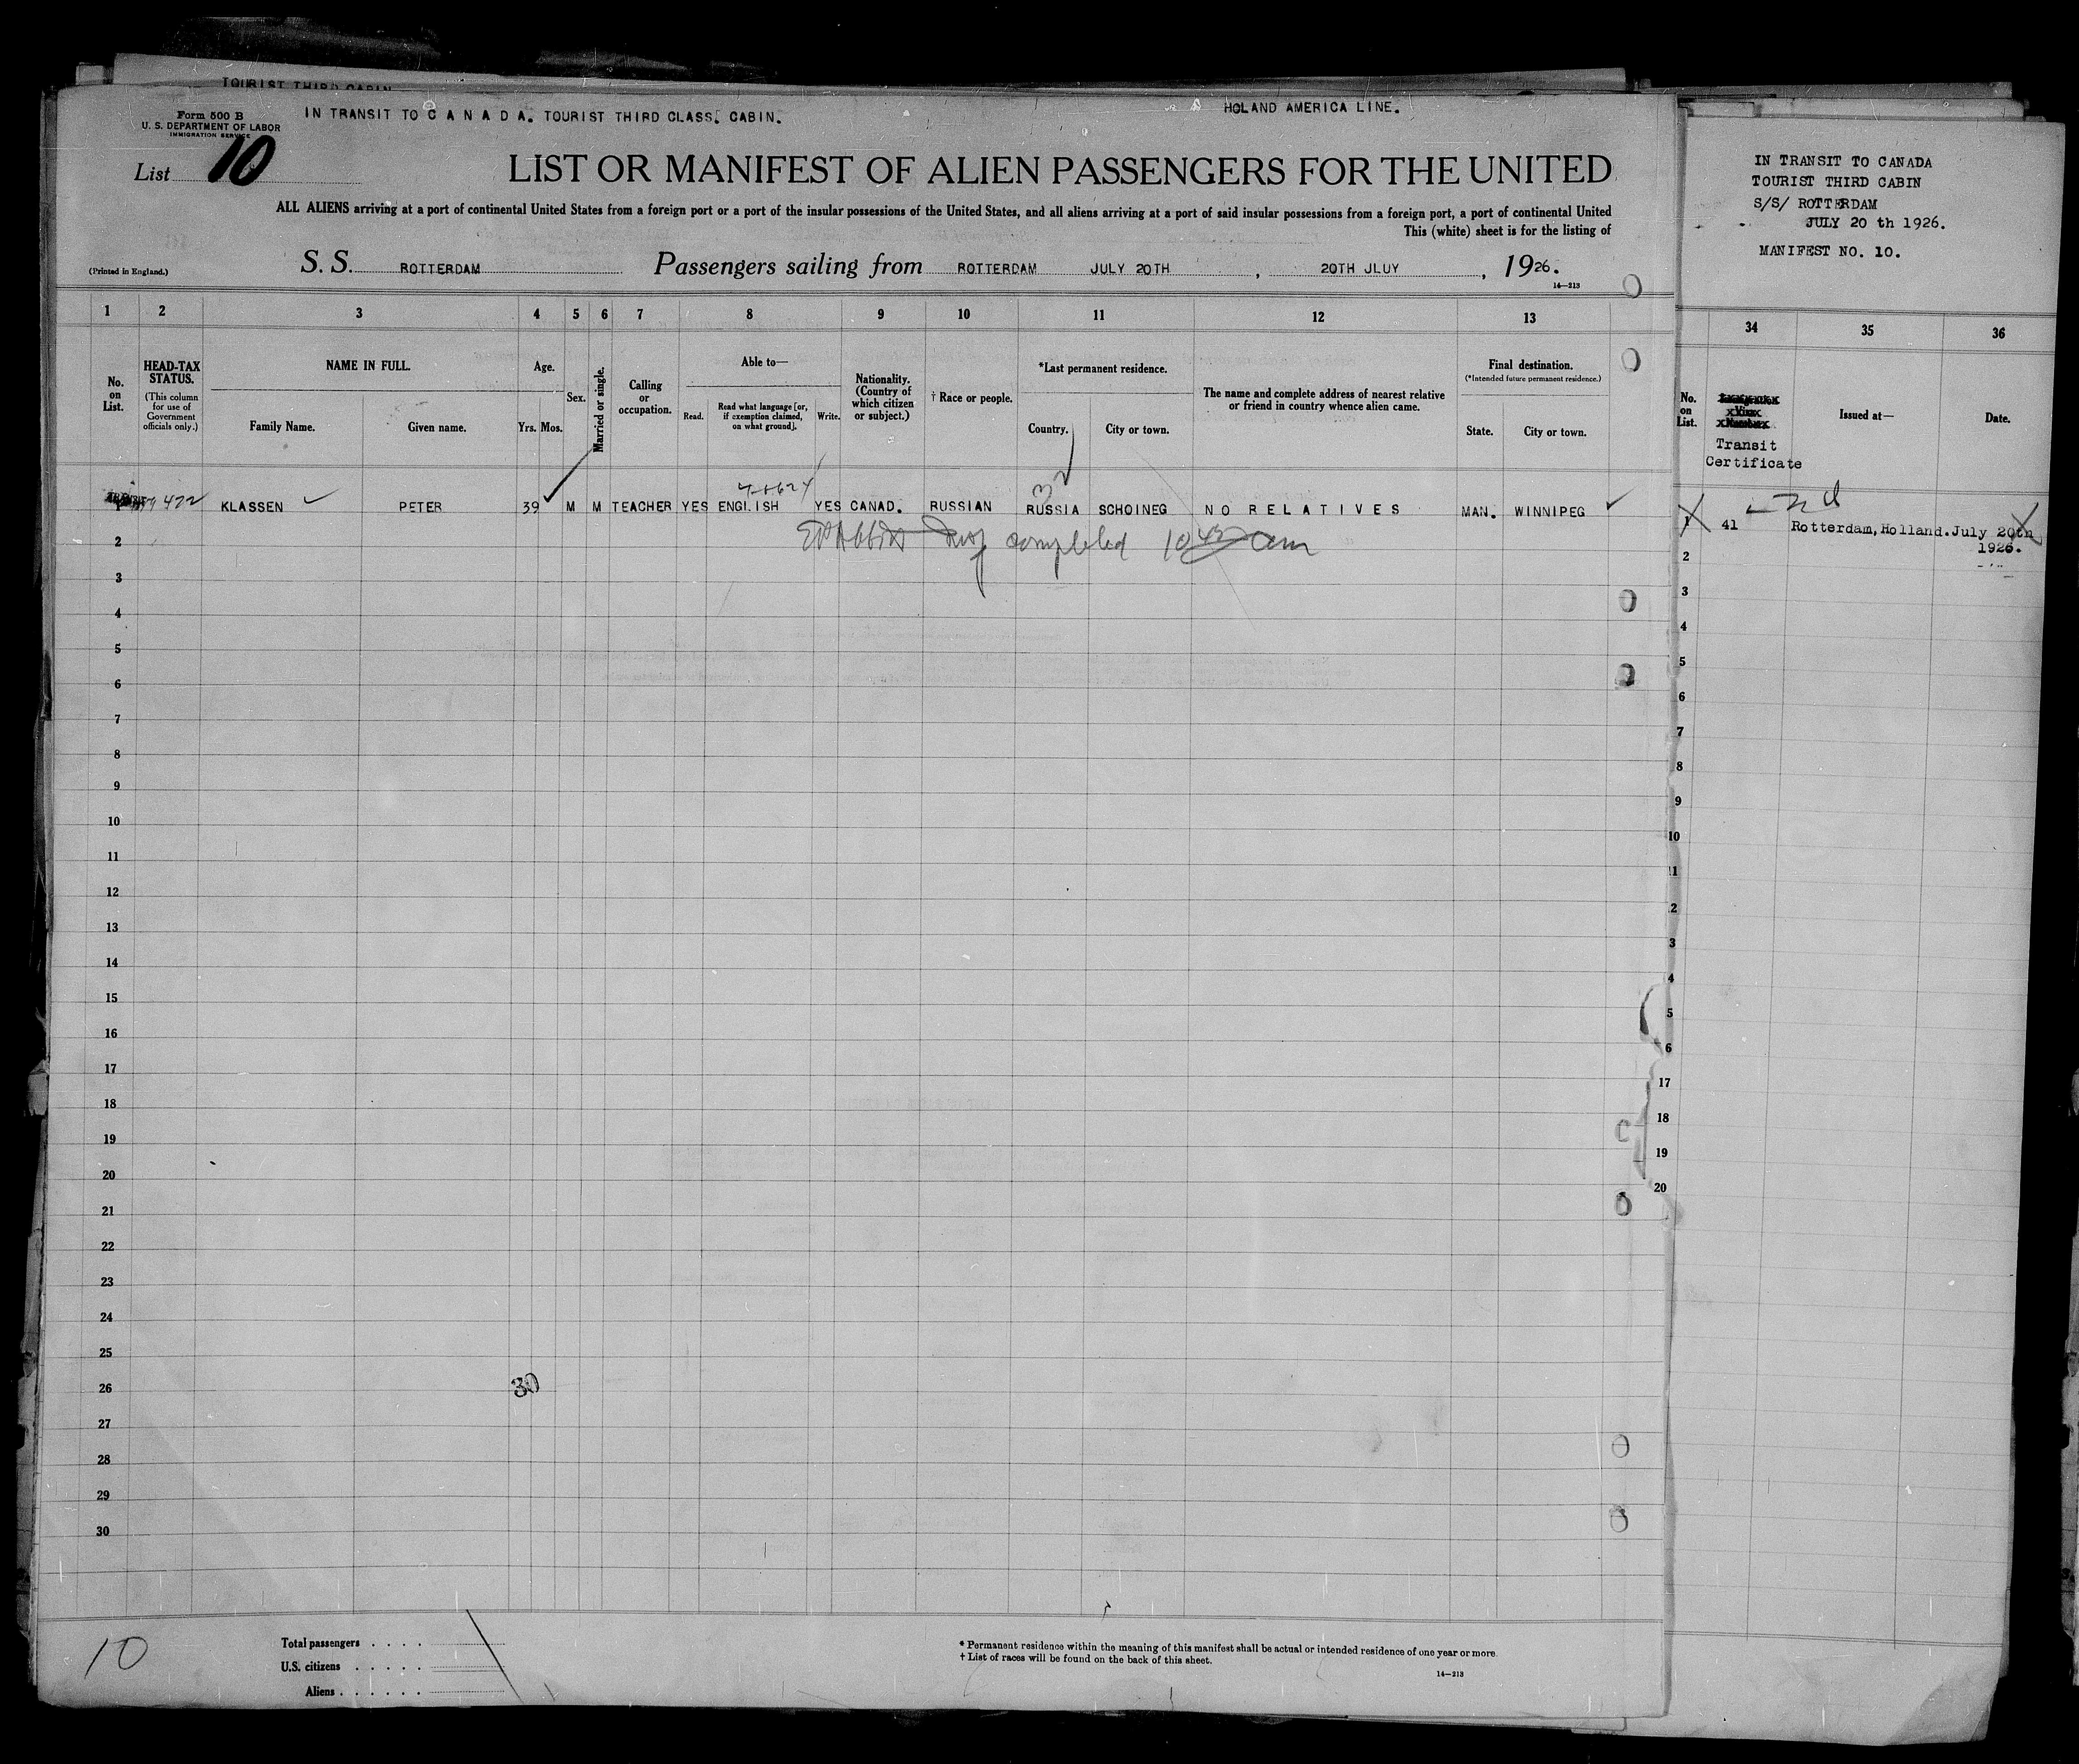 TOURIST THIRD CABIN
Form 500 B
U. S. DEPARTMENT OF LABOR
IMMIGRATION SERVICE
IN TRANSIT TO C A N A D A. TOURIST THIRD CLASS. CABIN.
HOLAND AMERICA LINE.
List 10
LIST OR MANIFEST OF ALIEN PASSENGERS FOR THE UNITED
ALL ALIENS arriving at a port of continental United States from a foreign port or a port of the insular possessions of the United States, and all aliens arriving at a port of said insular possessions from a foreign port, a port of continental United
This (white) sheet is for the listing of
(Printed in England.)
S. S. ROTTERDAM Passengers sailing from ROTTERDAM JULY 20TH , 20TH JLUY , 1926.
14—213
1 2 3 4 5 6 7 8 9 10 11 12 13
No. on List.
HEAD-TAX STATUS.
(This column for use of Government officials only.)
NAME IN FULL.
Family Name. Given name.
Age.
Yrs. Mos.
Sex.
Married or single.
Calling or occupation.
Able to—
Read. Read what language [or, if exemption claimed, on what ground]. Write.
Nationality. (Country of which citizen or subject.)
† Race or people.
*Last permanent residence.
Country. City or town.
The name and complete address of nearest relative or friend in country whence alien came.
Final destination.
(*Intended future permanent residence.)
State. City or town.
472 KLASSEN PETER 39 M M TEACHER YES ENGLISH YES CANAD. RUSSIAN RUSSIA SCHOINEG NO RELATIVES MAN. WINNIPEG
2 completed 10 45 am
3
4
5
6
7
8
9
10
11
12
13
14
15
16
17
18
19
20
21
22
23
24
25
26 30
27
28
29
30
10
Total passengers . . . .
U.S. citizens . . . . .
Aliens . . . . . .
* Permanent residence within the meaning of this manifest shall be actual or intended residence of one year or more.
† List of races will be found on the back of this sheet.
14—213
IN TRANSIT TO CANADA
TOURIST THIRD CABIN
S/S/ ROTTERDAM
JULY 20 th 1926.
MANIFEST NO. 10.
34 35 36
No. on List.
Transit
Certificate
Issued at—
Date.
1 41 Rotterdam, Holland. July 20th
2 1926.
3
4
5
6
7
8
9
10
11
2
3
4
5
6
17
18
19
20